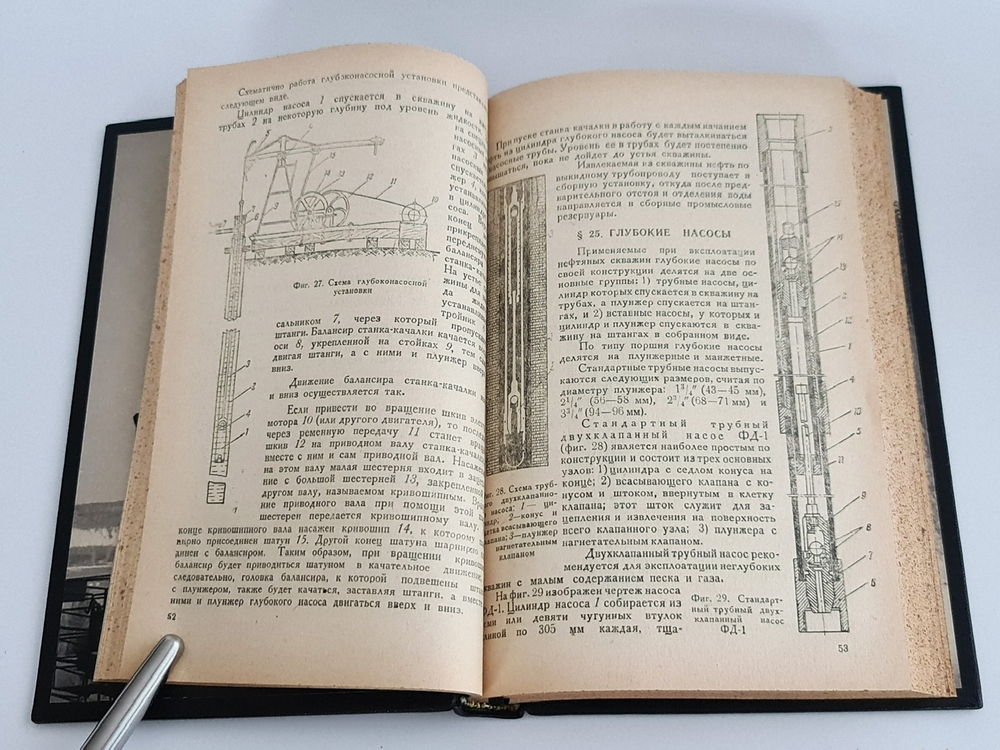 Схематично работа глубоконасосной установки
следующем виде.
Цилиндр насоса 1 спускается в скважину на
трубах 2 на некоторую глубину под уровень
Фиг. 27. Схема глубоконасосной
установки
сальником 7, через который
штанги. Балансир станка-качалки качается
оси 8, укрепленной на стойках 9, тем
двигая штанги, а с ними и плунжер
вниз.
Движение балансира станка-качалки
и вниз осуществляется так.
Если привести во вращение шкив
мотора 10 (или другого двигателя), то
через ременную передачу 11 станет
шкив 12 на приводном валу станка-качалки
вместе с ним и сам приводной вал.
на этом валу малая шестерня входит в
ние с большой шестерней 13,
другом валу, называемом кривошипным.
ние приводного вала при помощи этой
шестерен передается кривошипному валу.
конце кривошипного вала насажен кривошип 14, к которому
нирно присоединен шатун 15. Другой конец шатуна шарнирно
динен с балансиром. Таким образом, при вращении
балансир будет приводиться шатуном в качательное
следовательно, головка балансира, к которой подвешены
с плунжером, также будет качаться, заставляя штанги, а вместе
ними и плунжер глубокого насоса двигаться вверх и вниз.
52
При пуске станка качалки в работу с каждым качанием
на цилиндра глубокого насоса будет выталкиваться
насосные трубы. Уровень ее в трубах будет постепенно
пока не дойдет до устья скважины.
Извлекаемая из скважины нефть по
выкидному трубопроводу поступает в
сборную установку, откуда после пред-
варительного отстоя и отделения воды
направляется в сборные промысловые
резервуары.
§ 25. ГЛУБОКИЕ НАСОСЫ
Применяемые при эксплоатации
нефтяных скважин глубокие насосы по
своей конструкции делятся на две ос-
новные группы: 1) трубные насосы, ци-
линдр которых спускается в скважину на
трубах, а плунжер спускается на штан-
гах, и 2) вставные насосы, у которых и
цилиндр и плунжер спускаются в сква-
жину на штангах в собранном виде.
По типу поршня глубокие насосы
делятся на плунжерные и манжетные.
Стандартные трубные насосы выпус-
каются следующих размеров, считая по
диаметру плунжера: 1³/₄" (43—45 мм),
2¹/₄" (56—58 мм), 2³/₄" (68—71 мм) и
3³/₄" (94—96 мм).
Стандартный трубный
двухклапанный насос ФД-1
(фиг. 28) является наиболее простым по
конструкции и состоит из трех основных
узлов: 1) цилиндра с седлом конуса на
конце; 2) всасывающего клапана с ко-
нусом и штоком, ввернутым в клетку
клапана; этот шток служит для за-
цепления и извлечения на поверхность
всего клапанного узла; 3) плунжера с
нагнетательным клапаном.
Двухклапанный трубный насос реко-
мендуется для эксплоатации неглубоких
скважин с малым содержанием песка и газа.
На фиг. 29 изображен чертеж насоса
ФД-1. Цилиндр насоса 1 собирается из
или девяти чугунных втулок
длиной по 305 мм каждая, тща-
Фиг. 28. Схема труб-
двухклапанно-
насоса: 1 — ци-
2—конус и
всасывающего
клапана; 3—плунжер
нагнетательным
клапаном
Фиг. 29. Стандарт-
ный трубный двух-
клапанный насос
ФД-1
53